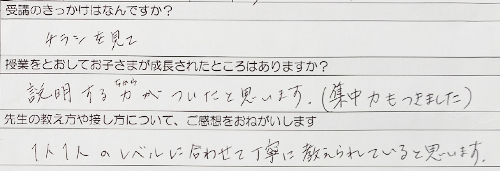 受講のきっかけはなんですか？
チラシを見て
授業をとおしてお子さまが成長されたところはありますか？
説明する力がついたと思います。(集中力もつきました)
先生の教え方や接し方について、ご感想をおねがいします
1人1人のレベルに合わせて丁寧に教えられていると思います。